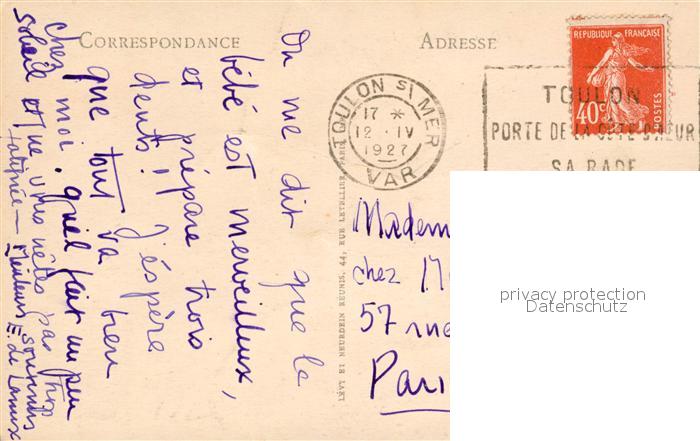 CORRESPONDANCE
ADRESSE
REPUBLIQUE FRANÇAISE
40c
POSTES
TOULON S/ MER
17 *
12 · IV
1927
VAR
TOULON
PORTE DE LA COTE D'AZUR
SA RADE
On me dit que le
bébé est merveilleux,
et prépare trois
dents! J'espère
que tout va bien
chez moi. quel fait un peu
soleil et que vous n'êtes pas trop
fatiguée — Meilleurs souvenirs
E. de
LEVY ET NEURDEIN REUNIS, 44, RUE LETELLIER, PARIS
Madem
chez M
57 rue
Pari
privacy protection
Datenschutz